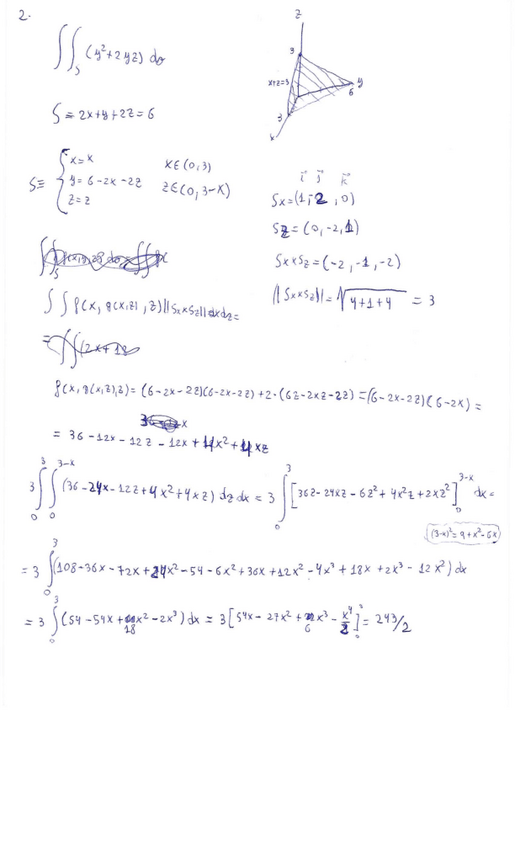 2.
∬_S (y²+2yz) dσ
z
3
x+z=3
y
6
3
x
S ≡ 2x+y+2z=6
S≡ { x=x   x∈(0,3)
y=6-2x-2z   z∈(0,3-x)
z=z
i j k
Sx=(1,-2,0)
Sz=(0,-2,1)
Sx×Sz=(-2,-1,-2)
||Sx×Sz||=√4+1+4 = 3
∫∫ f(x, g(x,z), z)||Sx×Sz||dxdz=
f(x, g(x,z),z)= (6-2x-2z)(6-2x-2z)+2·(6z-2xz-2z) =(6-2x-2z)(6-2x) =
= 36-12x-12z-12x+4x²+4xz
3∫₀³∫₀^(3-x) (36-24x-12z+4x²+4xz) dz dx = 3∫₀³[36z-24xz-6z²+4x²z+2xz²]₀^(3-x) dx=
(3-x)²=9+x²-6x
= 3∫₀³(108-36x-72x+24x²-54-6x²+36x+12x²-4x³+18x+2x³-12x²) dx
= 3∫₀³(54-54x+18x²-2x³) dx = 3[54x-27x²+6x³-x⁴/2]₀³= 243/2